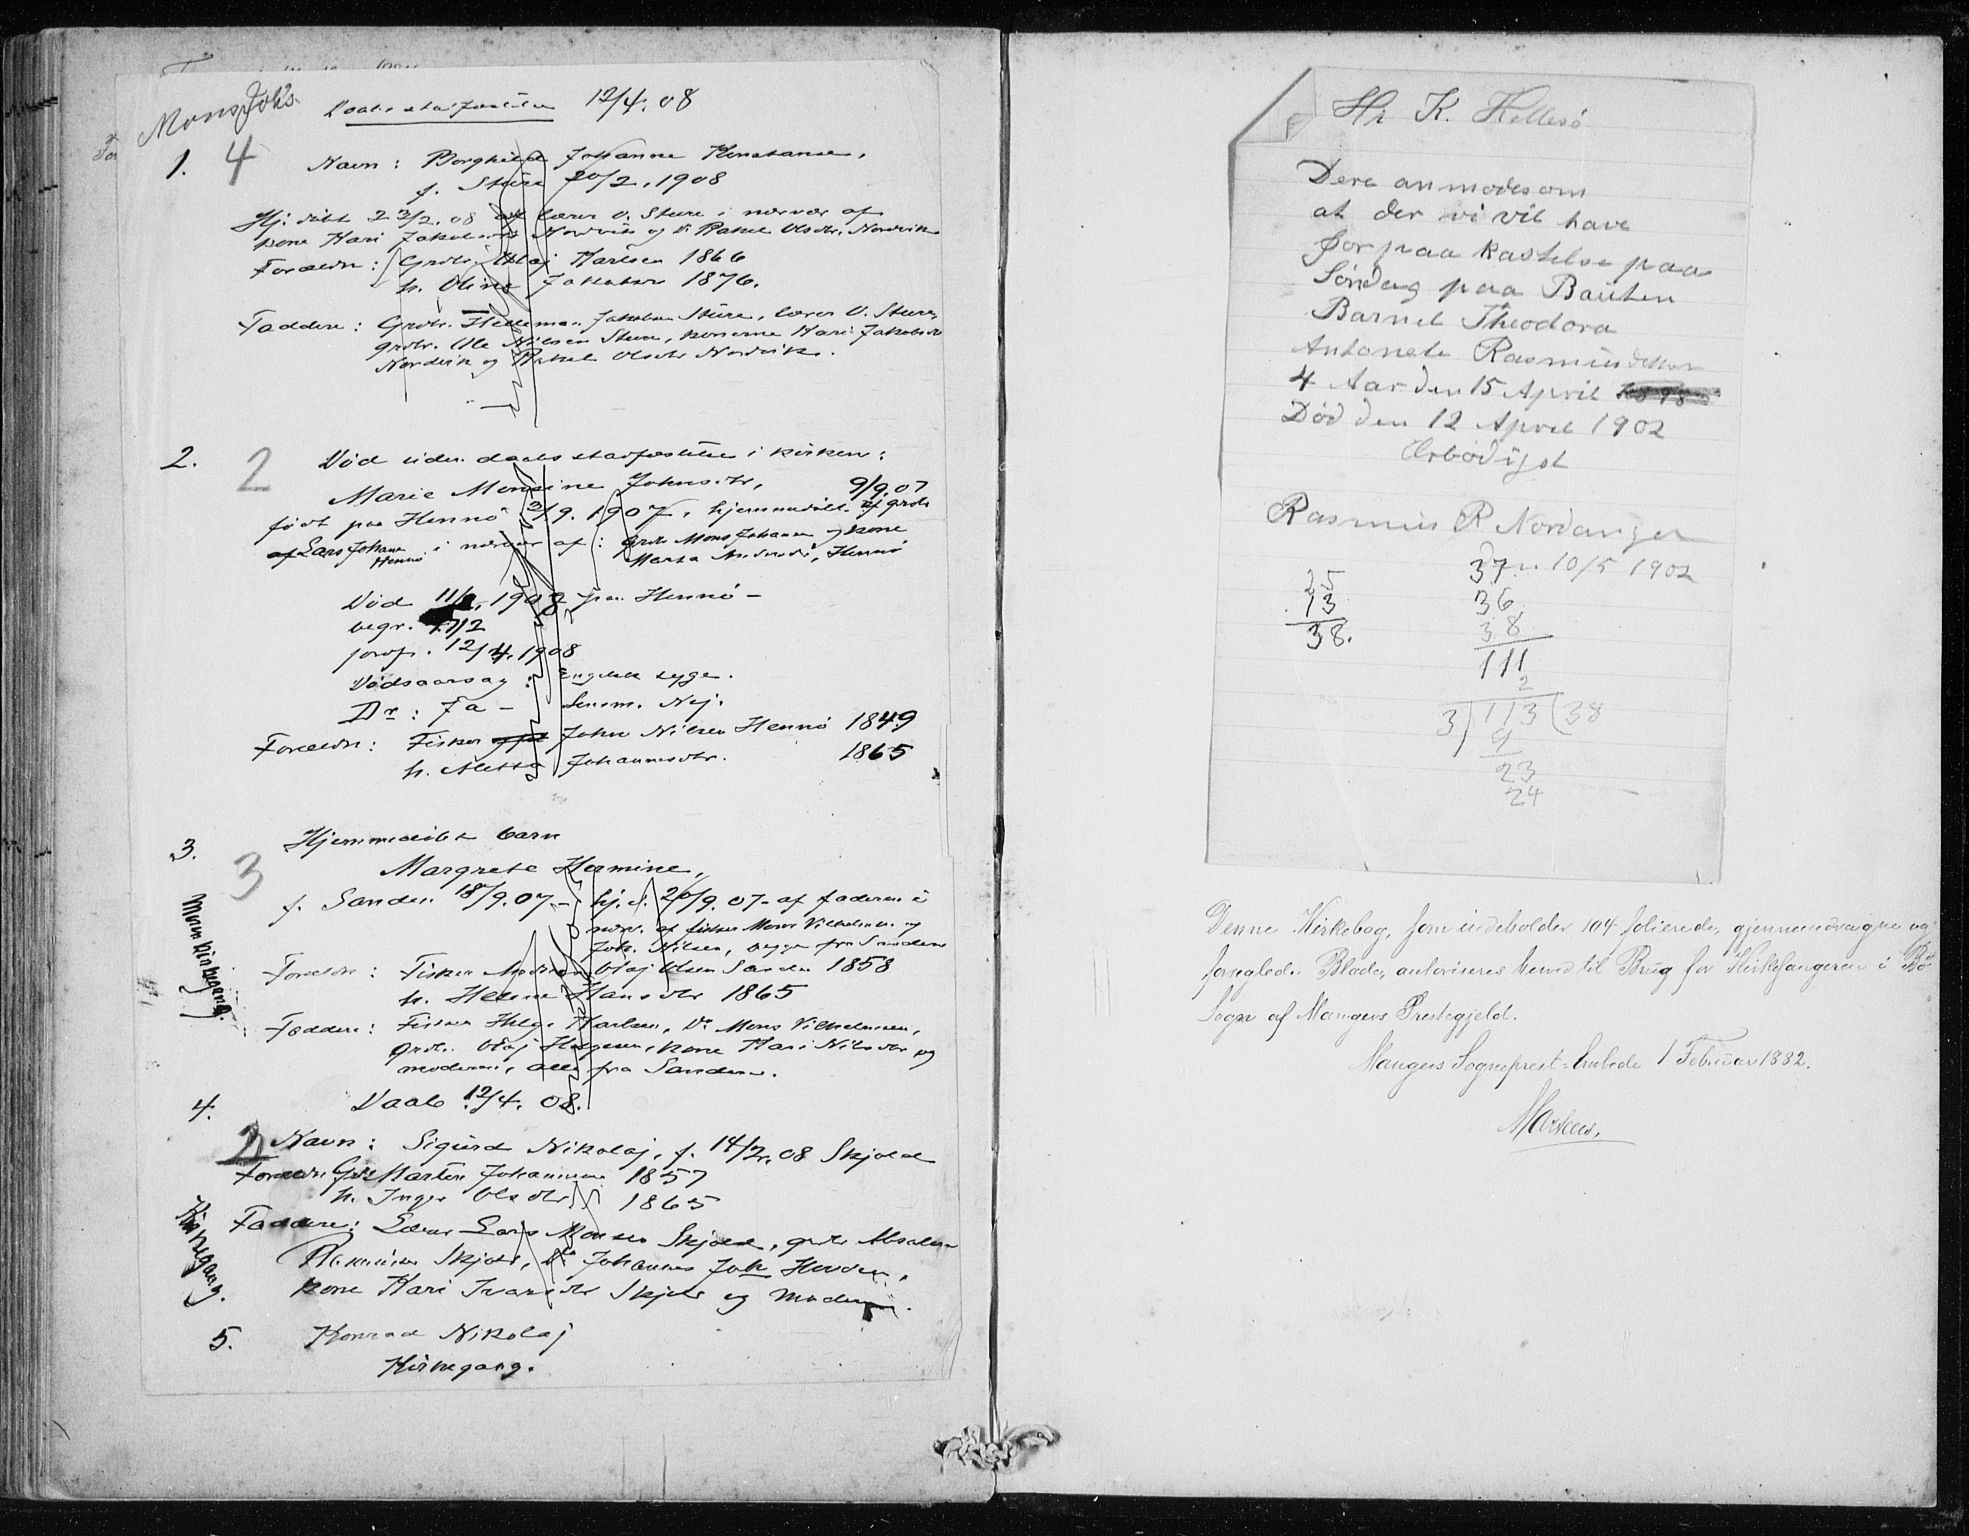 Mons Joh's
Daabs stadfæstelse 12/4. 08
1. 4 Navn: Borghild Johanne Konstanse,
f. Sture 20/2. 1908
Hj: døbt 23/2. 08 af lærer O. Sture i nærvær af
kone Kari Jakobsdtr Nordvik og Do Rakel Olsdtr. Nordvik
Forældre: Grdbr. Olaj Karlsen 1866
h. Oline Jakobsdr 1876.
Faddere: Grdbr. Helleman Jakobsen Sture, lærer O. Sture,
grdbr. Ole Nilsen Sture, konerne Kari Jakobsdr
Nordvik og Rakel Olsdtr Nordvik.
2. 2 Død uden daabsstadfæstelse i kirken:
Marie Monsine Johnsdtr, 9/9.07
født paa Hennø 3/9. 1907, hjemmedøbt af grdbr
af Lars Johann Hennø i nærvær af: grdb. Mons Johansen og kone
Marta Hennø
Død 11/2 1908 paa Hennø -
begr. 17/2
jordf. 12/4. 1908
Dødsaarsag: Engelsk syge.
Dr: Ja - Nej.
Forældre: Fisker John Nilsen Hennø 1849
h. Metta Johannesdtr. 1865
3. 3 Hjemmedøbt barn
Margrete Hermine,
f. Sanden 18/9. 07 - hj. d. 20/9. 07 - af faderen i
nærv. af fisker Mons Vilhelmsen og
Joh. Nilsen, begge fra Sanden
Moren kirkegang.
Forældre: Fisker Olaj Olsen Sanden 1858
h. Helene Hansdtr 1865
Faddere: Fisker Helge Karlsen, Do Mons Vilhelmsen,
Grdb. Olaj Helgesen, kone Kari Nilsdtr og
moderen, alle fra Sanden.
4. Daab 12/4. 08.
2 Navn: Sigurd Nikolaj, f. 14/2. 08 Skjold
Forældre Grdb Marten Johannesen 1857
h. Inger Olsdtr 1865
Kirkegang.
Faddere: Lærer Lars Monsen Skjold, grdb Absalon
Rasmussen Skjold, Do Johannes Joh
kone Kari Ivarsdtr Skjold og Moderen.
5. Konrad Nikolaj
Kirkegang.
Hr K. Hellesø
Dere anmodes om
at der vi vil have
Jorpaa kastelse paa
Søndag paa
Barnet Theodora
Antonete Rasmusdatter
4 Aar den 15 April 1898
Død den 12 April 1902
Ærbødigst
Rasmus R Nordanger
10/5 1902
25
13
38.
37
36
38
111
2
3 113 (38
9
23
24
Denne Kirkebog, som indeholder 104 folierede, gjennemdragne og
forseglede Blade, autoriseres herved til Brug for Kirkesangeren i Bø
Sogn af Mangers Prestegjeld.
Mangers Sogneprest-Embede 1 Februar 1882.